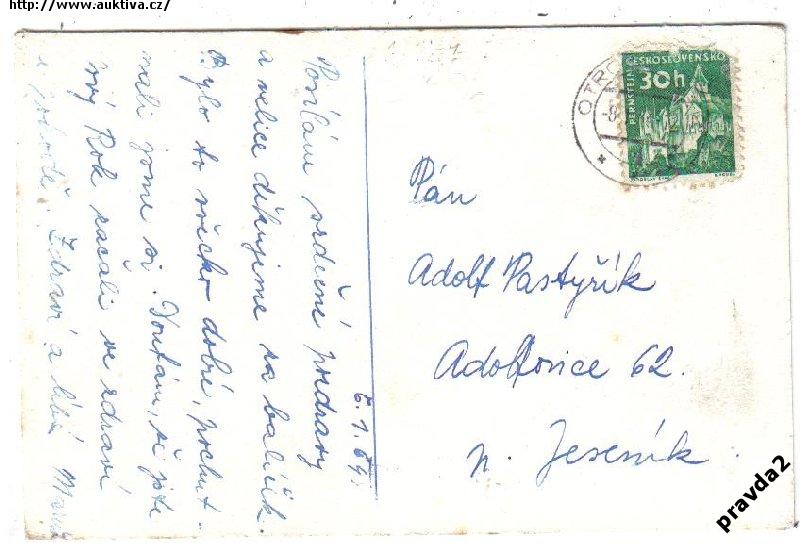 http://www.auktiva.cz/
6.1.64.
Posílám srdečné pozdravy
a velice děkujeme za balíček.
Bylo to všecko dobré, pochut-
nali jsme si. Doufám, že jste
nový Rok začali ve zdraví
a Zdraví a líbá
ČESKOSLOVENSKO
30h
PERNŠTEJN
OTRO
Pán
Adolf Pastyřík
Adolfovice 62.
p. Jeseník
pravda2